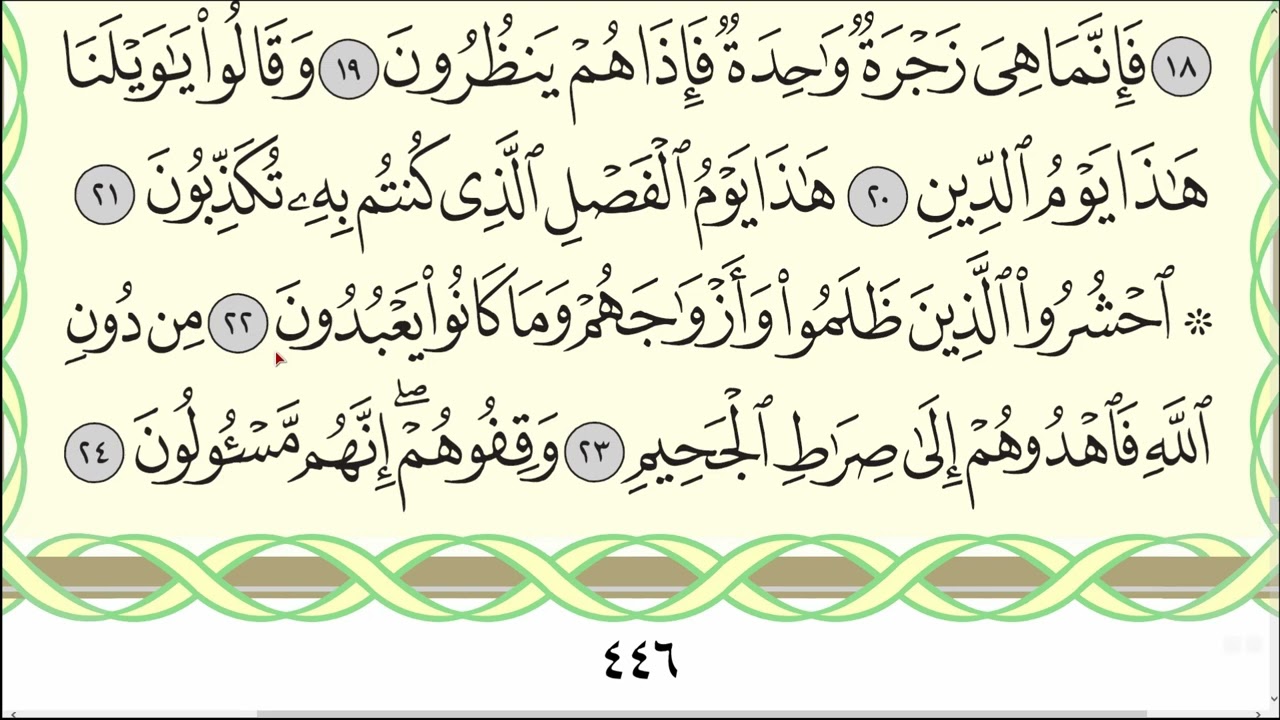 ١٨ فَإِنَّمَا هِىَ زَجْرَةٌۭ وَٰحِدَةٌۭ فَإِذَا هُمْ يَنظُرُونَ ١٩ وَقَالُوا۟ يَـٰوَيْلَنَا
هَـٰذَا يَوْمُ ٱلدِّينِ ٢٠ هَـٰذَا يَوْمُ ٱلْفَصْلِ ٱلَّذِى كُنتُم بِهِۦ تُكَذِّبُونَ ٢١
۞ ٱحْشُرُوا۟ ٱلَّذِينَ ظَلَمُوا۟ وَأَزْوَٰجَهُمْ وَمَا كَانُوا۟ يَعْبُدُونَ ٢٢ مِن دُونِ
ٱللَّهِ فَٱهْدُوهُمْ إِلَىٰ صِرَٰطِ ٱلْجَحِيمِ ٢٣ وَقِفُوهُمْ ۖ إِنَّهُم مَّسْـُٔولُونَ ٢٤
٤٤٦